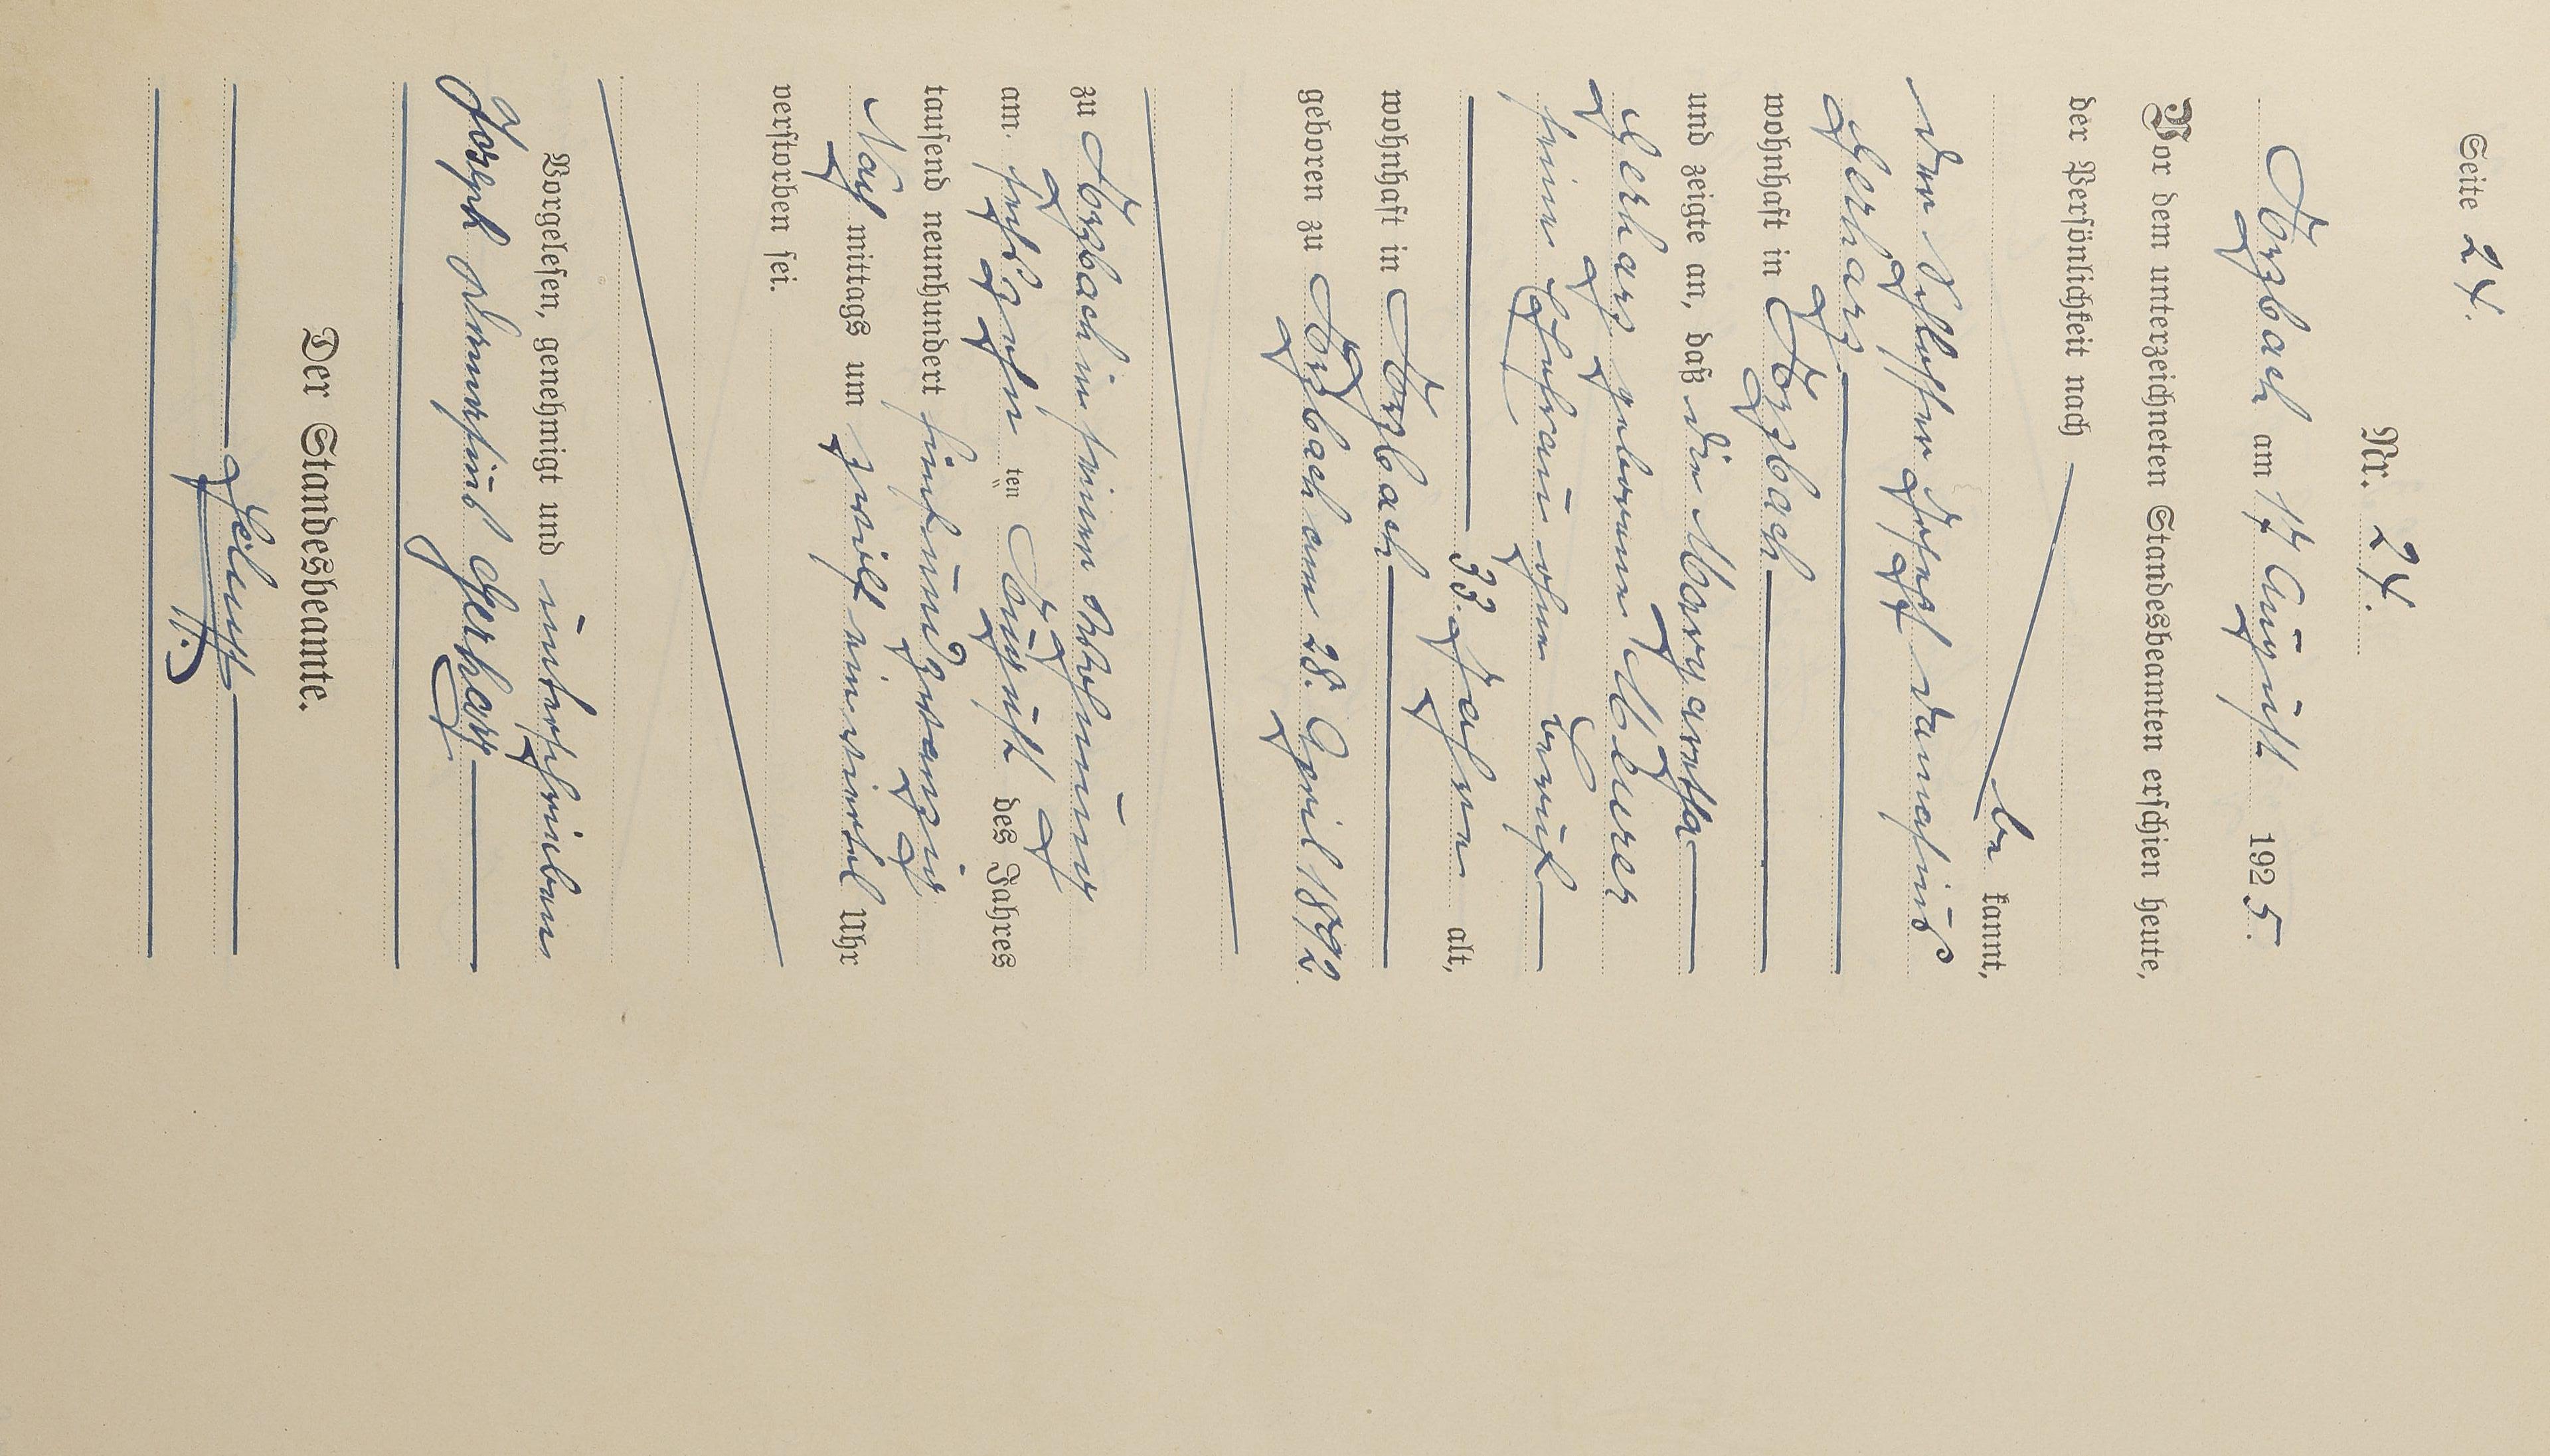 Seite 24.
Nr. 24.
Atzbach am 17 August 1925.
Vor dem unterzeichneten Standesbeamten erschien heute,
der Persönlichkeit nach
be kannt,
der Schlosser Josef
Gerharz
wohnhaft in
und zeigte an, daß die Margaretha
Gerharz geborene Meurer
seine Ehefrau ohne Beruf
33. Jahre alt,
wohnhaft in
geboren zu am 28. April 1892
zu in seiner Wohnung
am sechszehn ten August des Jahres
tausend neunhundert fünfundzwanzig
Nach mittags um zwölf ein viertel Uhr
verstorben sei.
Vorgelesen, genehmigt und unterschrieben
Joseph Gerharz
Der Standesbeamte.